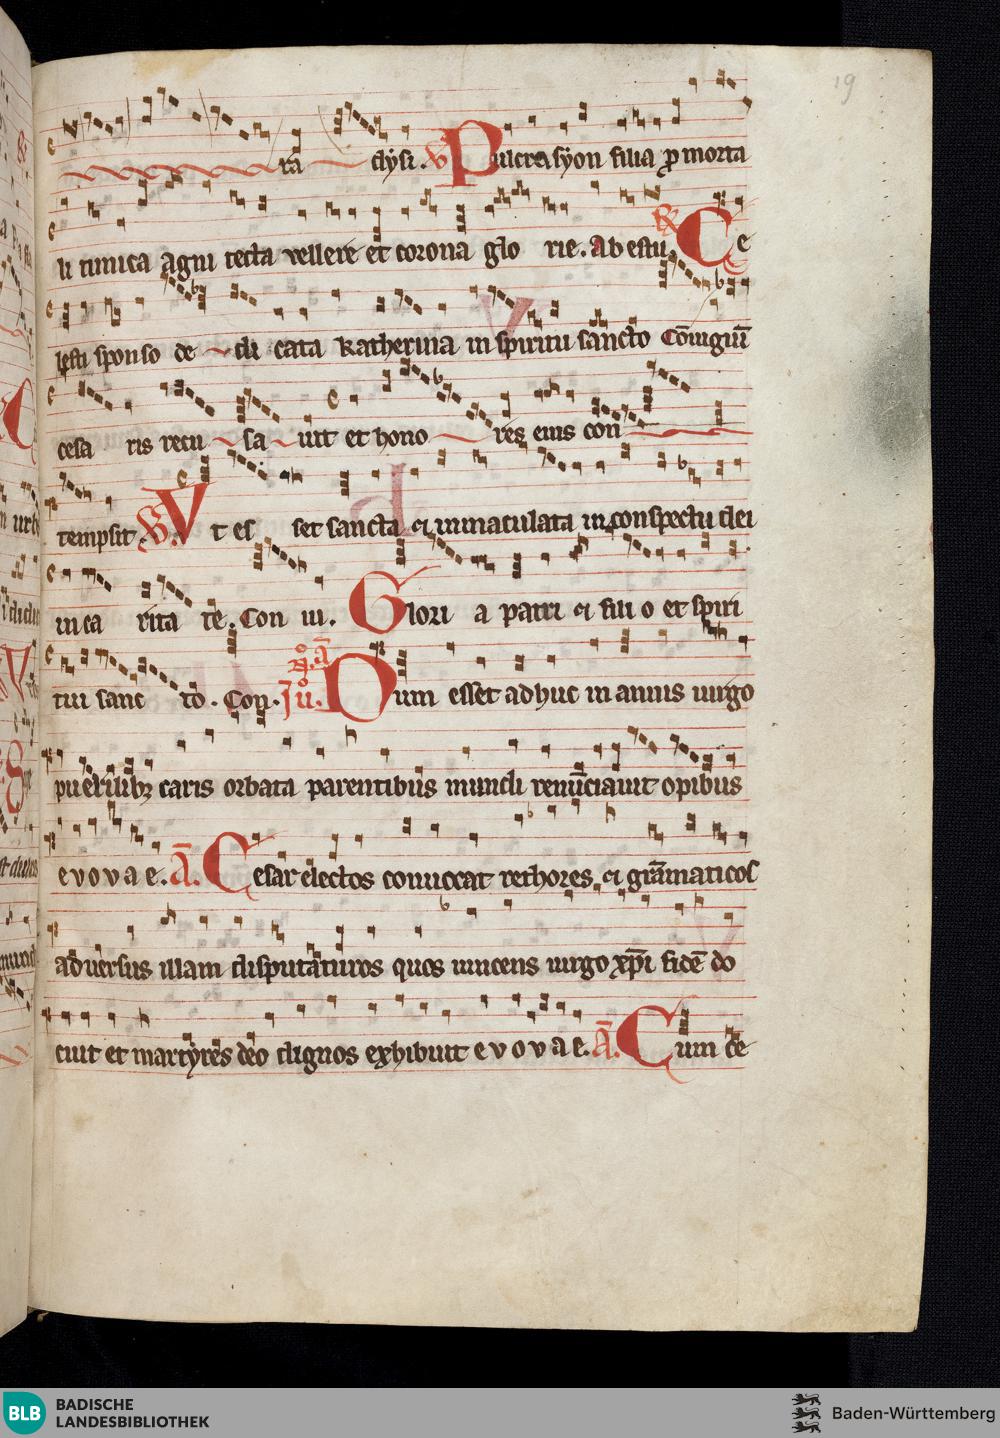 19
ra dysi. V Pulcra syon filia p morta
li tunica agni tecta vellere et corona glo rie. Ab estu. R Ce
lesti sponso de di cata Katherina in spiritu sancto Coniugiū
cesa ris recu sa uit et hono res eius con
tempsit. V Vt es set sancta et inmaculata in conspectu dei
in ca rita te. Con iu. Glori a patri et fili o et spiri
tui sanc to. Con. Dum esset adhuc in annis uirgo
puerilibꝫ caris orbata parentibus mundi renūciauit opibus
e v o v a e. A. Cesar electos conuocat rethores et grāmaticos
aduersus illam disputaturos quos uincens uirgo xp̄i fidē do
cuit et martyres deo dignos exhibuit e v o v a e. A. Cum ce
BLB BADISCHE
LANDESBIBLIOTHEK
Baden-Württemberg